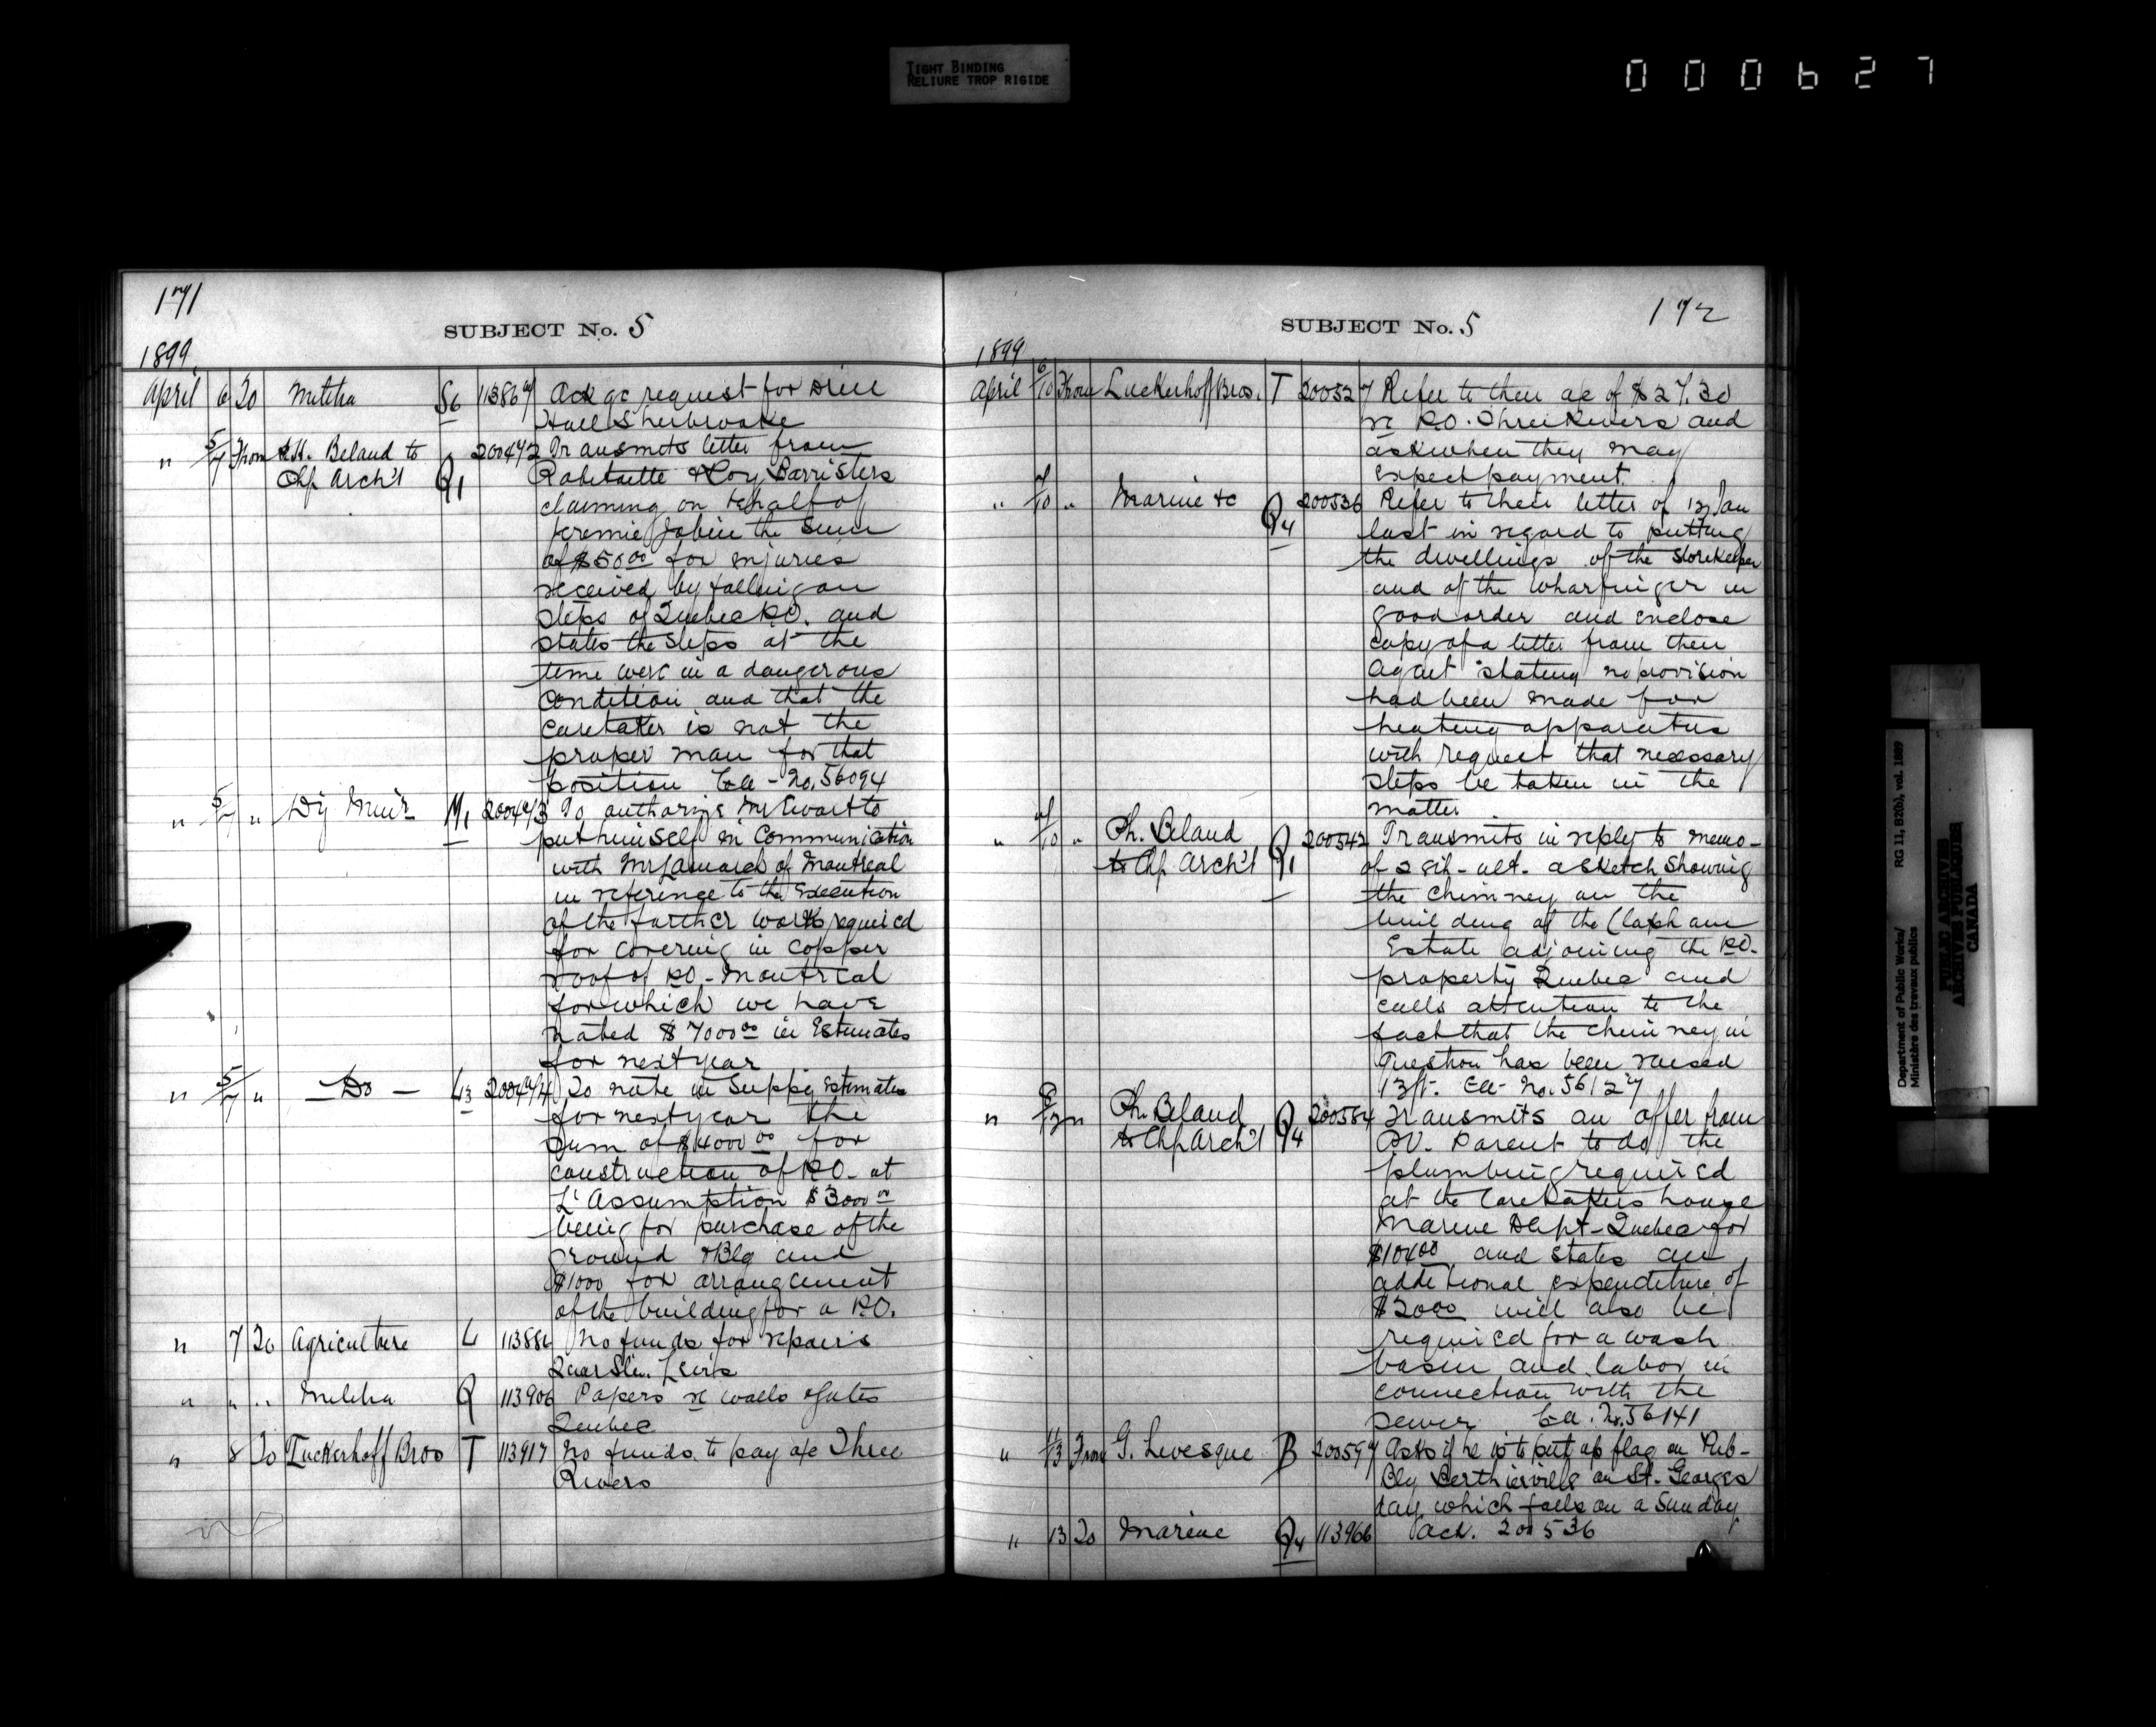 TIGHT BINDING
RELIURE TROP RIGIDE
000627
171
SUBJECT No. 5
1899
April 6 To Militia S6 113867 Ack qc request for Drill
Hall Sherbrooke
" 5/7 From Ph. Beland to 200472 Transmits letter from
Chf Arch't Q1 Robitaille & Roy Barristers
claiming on behalf of
Jeremie Jobin the sum
of $50.00 for injuries
received by falling on
steps of Quebec P.O. and
states the steps at the
time were in a dangerous
condition and that the
caretaker is not the
proper man for that
position Ea - No. 56094
" 5/7 " Dy Minr M1 200473 To authorize Mr Ewart to
put himself in communication
with Mr Lamarch of Montreal
in reference to the execution
of the further work required
for covering in copper
roof of P.O. - Montreal
for which we have
noted $7000.00 in Estimates
for next year
" 5/7 " - Do - L3 200474 To note in Suppy Estimates
for next year the
sum of $4000.00 for
construction of P.O. at
L'Assumption $3000.00
being for purchase of the
ground & Blg and
$1000 for arrangement
of the building for a P.O.
" 7 To Agriculture L 113886 No funds for repairs
Quar Stn. Levis
" " " Militia Q 113906 Papers re walls & Gates
Quebec
" 8 To Luckerhoff Bros T 113917 No funds to pay a/c Three
Rivers
SUBJECT No. 5
172
1899
April 6/10 From Luckerhoff Bros. T 200527 Refer to their ac of $27.30
re P.O. Three Rivers and
ask when they may
expect payment.
" /10 " Marine &c Q4 200536 Refer to their letter of 13 Jan
last in regard to putting
the dwellings of the Storekeeper
and of the wharfinger in
good order and enclose
copy of a letter from their
Agent stating no provision
had been made for
heating apparatus
with request that necessary
steps be taken in the
matter
" /10 " Ph. Beland Q1 200542 Transmits in reply to memo-
to Chf Arch't of 28th - ult. a sketch showing
the chimney on the
building of the Clapham
Estate adjoining the P.O.
property Quebec and
calls attention to the
fact that the chimney in
question has been raised
13 ft. Ea - No. 56127
" 8/12 " Ph. Beland Q4 200584 Transmits an offer from
to Chf Arch't P.V. Parent to do the
plumbing required
at the Caretakers house
Marine Dept - Quebec for
$104.00 and states an
additional expenditure of
$20.00 will also be
required for a wash
basin and labor in
connection with the
sewer Ea. No. 56141
" 11/13 From G. Levesque B 200597 Asks if he is to put up flag on Pub-
Blg Berthierville on St. Georges
day which falls on a Sunday
" 13 To Marine Q4 113966 Ack. 200536
Department of Public Works/
Ministère des travaux publics
RG 11, B2(b), vol. 1889
PUBLIC ARCHIVES
ARCHIVES PUBLIQUES
CANADA